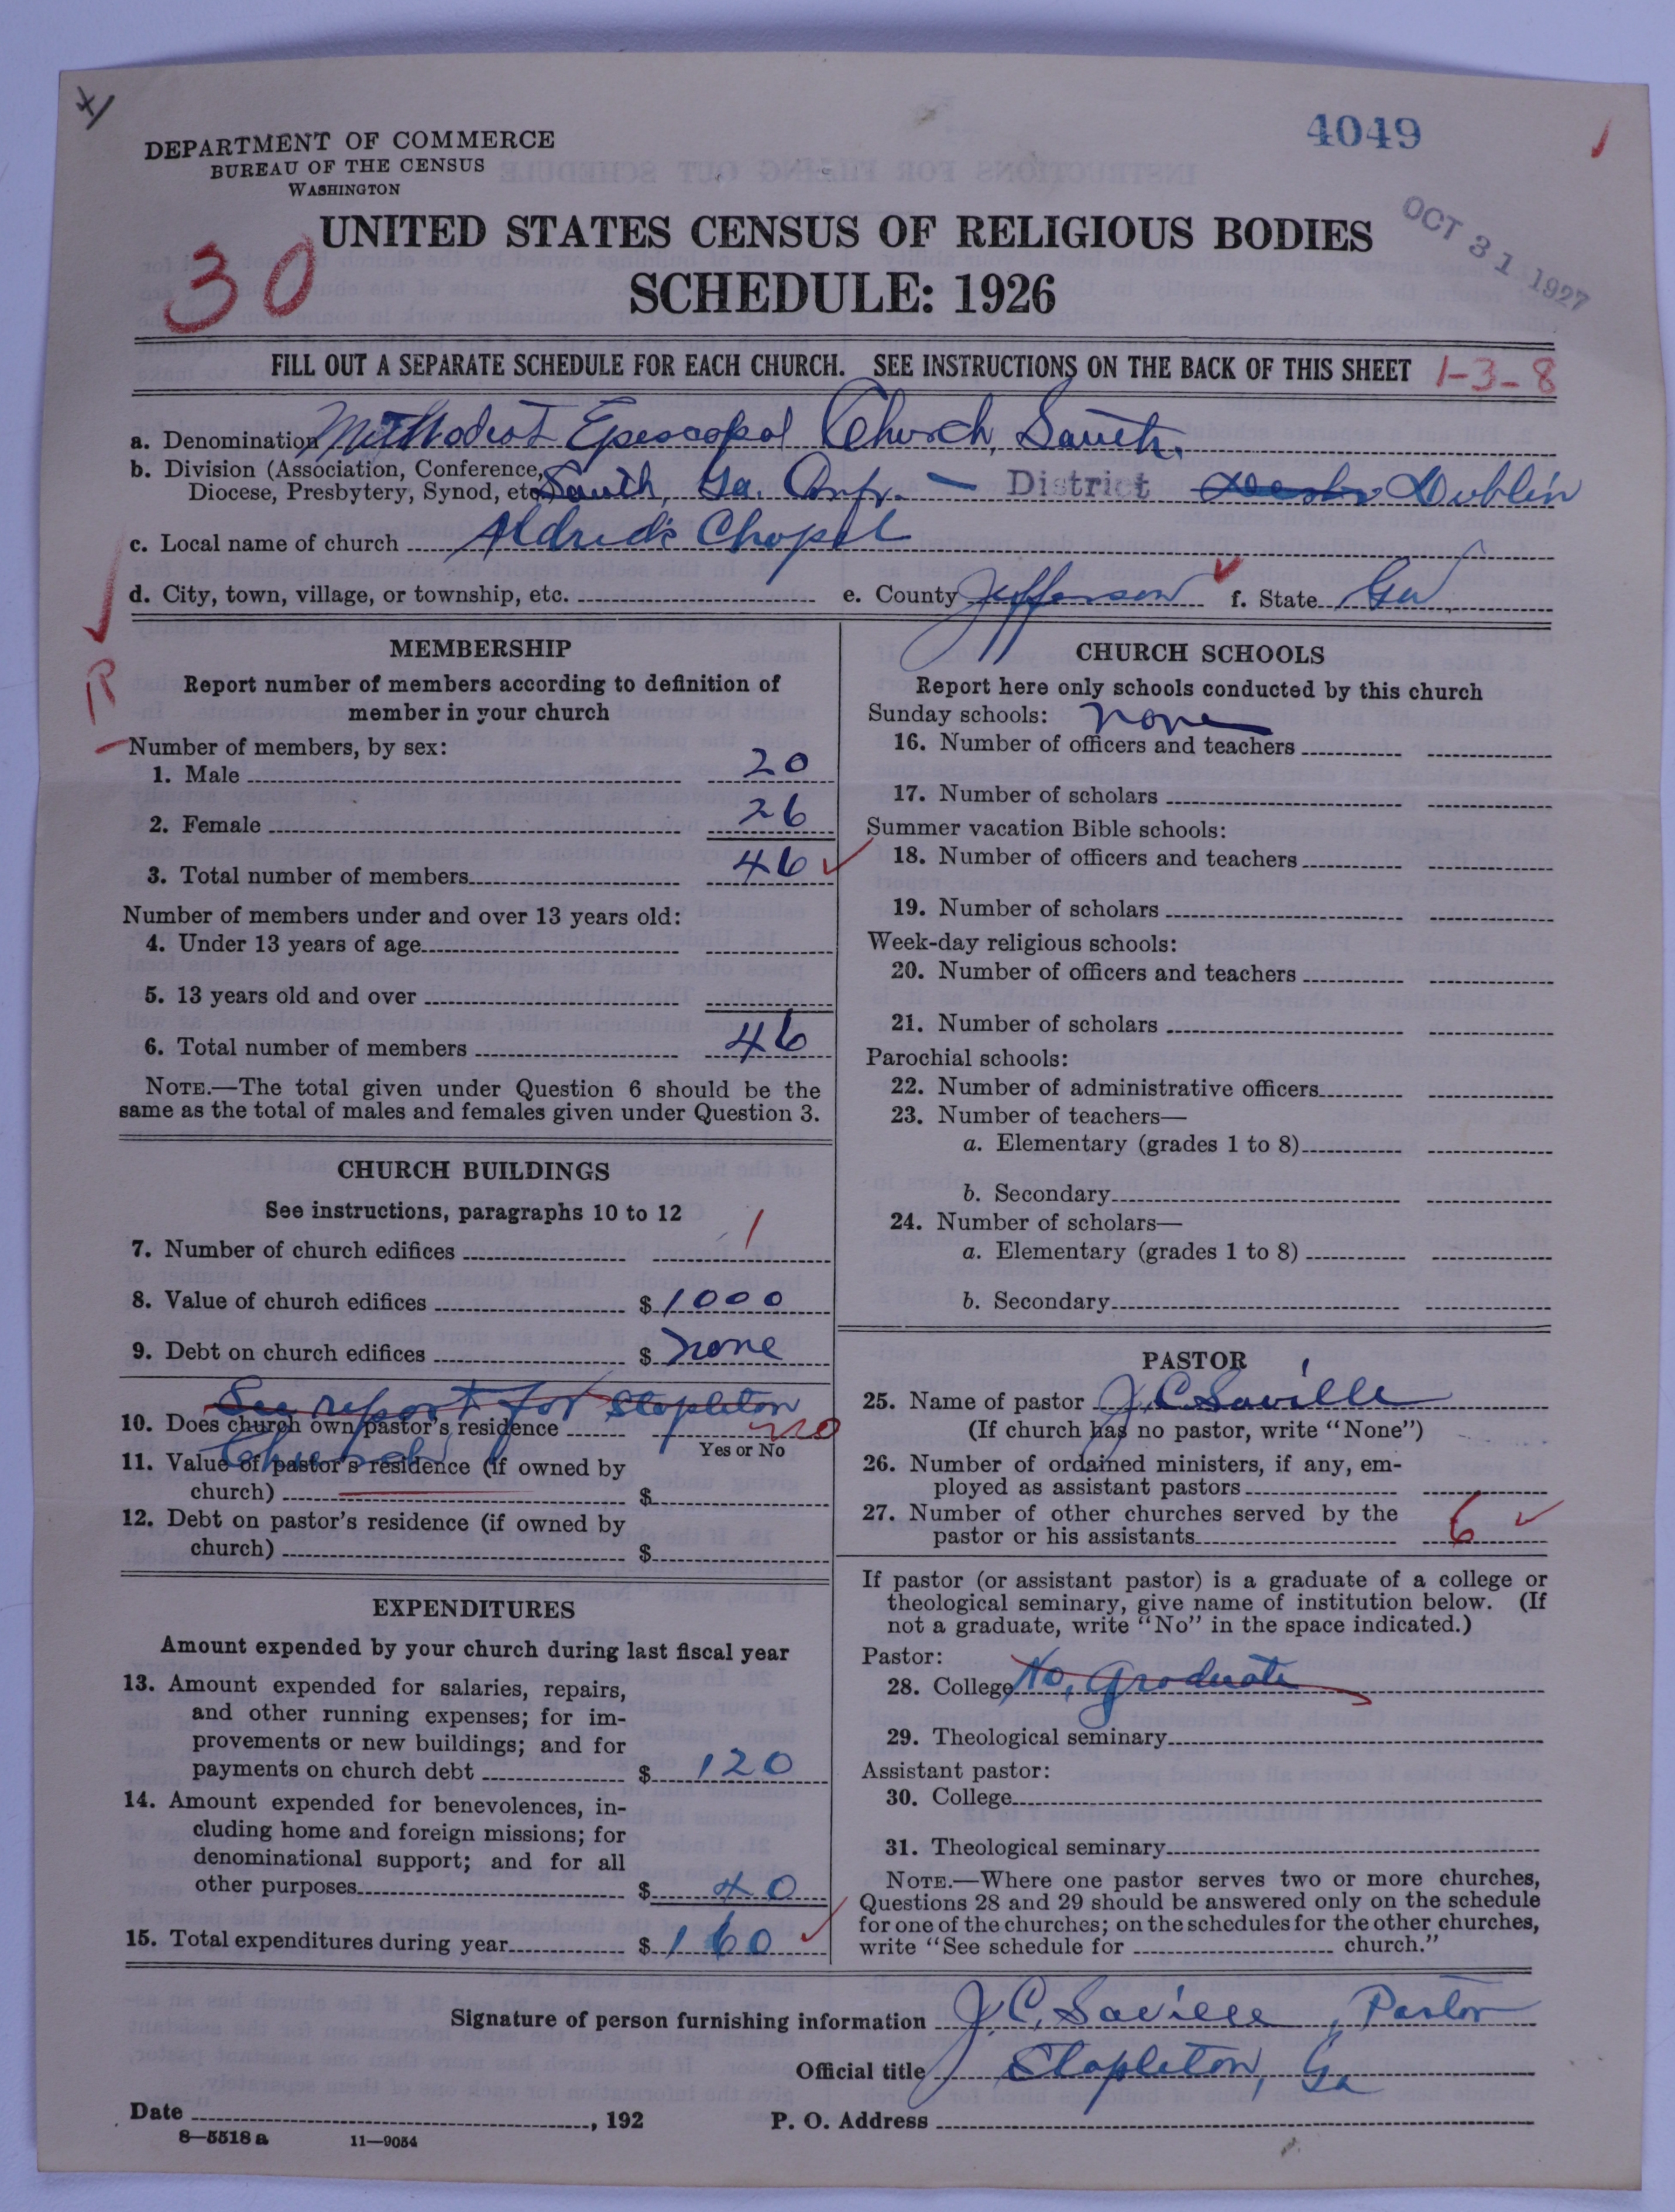 4049
DEPARTMENT OF COMMERCE
BUREAU OF THE CENSUS
WASHINGTON
OCT 31 1927
UNITED STATES CENSUS OF RELIGIOUS BODIES
30
SCHEDULE: 1926
FILL OUT A SEPARATE SCHEDULE FOR EACH CHURCH. SEE INSTRUCTIONS ON THE BACK OF THIS SHEET 1-3-8
a. Denomination Methodist Episcopal Church, South.
b. Division (Association, Conference,
Diocese, Presbytery, Synod, etc. South, Ga. Conf. — District Dublin
c. Local name of church Aldred's Chapel
d. City, town, village, or township, etc. e. County Jefferson f. State Ga.
R
MEMBERSHIP
Report number of members according to definition of
member in your church
Number of members, by sex:
1. Male 20
2. Female 26
3. Total number of members 46
Number of members under and over 13 years old:
4. Under 13 years of age
5. 13 years old and over
6. Total number of members 46
NOTE.—The total given under Question 6 should be the
same as the total of males and females given under Question 3.
CHURCH BUILDINGS
See instructions, paragraphs 10 to 12
7. Number of church edifices 1
8. Value of church edifices $ 1000
9. Debt on church edifices $ none
See report for Stapleton
10. Does church own pastor's residence no
Yes or No
Church
11. Value of pastor's residence (if owned by
church) $
12. Debt on pastor's residence (if owned by
church) $
EXPENDITURES
Amount expended by your church during last fiscal year
13. Amount expended for salaries, repairs,
and other running expenses; for im-
provements or new buildings; and for
payments on church debt $ 120
14. Amount expended for benevolences, in-
cluding home and foreign missions; for
denominational support; and for all
other purposes $ 40
15. Total expenditures during year $ 160
CHURCH SCHOOLS
Report here only schools conducted by this church
Sunday schools: none
16. Number of officers and teachers
17. Number of scholars
Summer vacation Bible schools:
18. Number of officers and teachers
19. Number of scholars
Week-day religious schools:
20. Number of officers and teachers
21. Number of scholars
Parochial schools:
22. Number of administrative officers
23. Number of teachers—
a. Elementary (grades 1 to 8)
b. Secondary
24. Number of scholars—
a. Elementary (grades 1 to 8)
b. Secondary
PASTOR
25. Name of pastor J. C. Saville
(If church has no pastor, write "None")
26. Number of ordained ministers, if any, em-
ployed as assistant pastors
27. Number of other churches served by the
pastor or his assistants 6
If pastor (or assistant pastor) is a graduate of a college or
theological seminary, give name of institution below. (If
not a graduate, write "No" in the space indicated.)
Pastor:
28. College No, graduate
29. Theological seminary
Assistant pastor:
30. College
31. Theological seminary
NOTE.—Where one pastor serves two or more churches,
Questions 28 and 29 should be answered only on the schedule
for one of the churches; on the schedules for the other churches,
write "See schedule for church."
Signature of person furnishing information J. C. Saville, Pastor
Official title Stapleton, Ga
Date , 192 P. O. Address
8—5518 a 11—9054